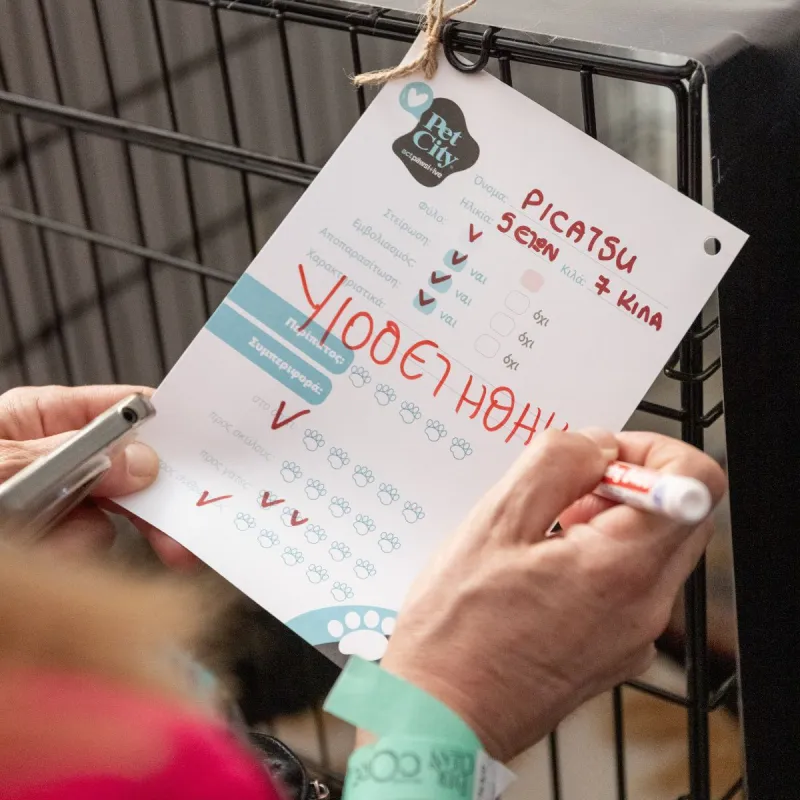 Pet
City
act pawsitive
Όνομα: PICATSU
Ηλικία: 5 ΕΤΩΝ Κιλά: 7 ΚΙΛΑ
Φύλο:
Στείρωση: ναι όχι
Εμβολιασμός: ναι όχι
Αποπαρασίτωση: ναι όχι
Χαρακτηριστικά:
ΥΙΟΘΕΤΗΘΗ
Περίπατος:
Συμπεριφορά:
προς σκύλους
προς γάτες